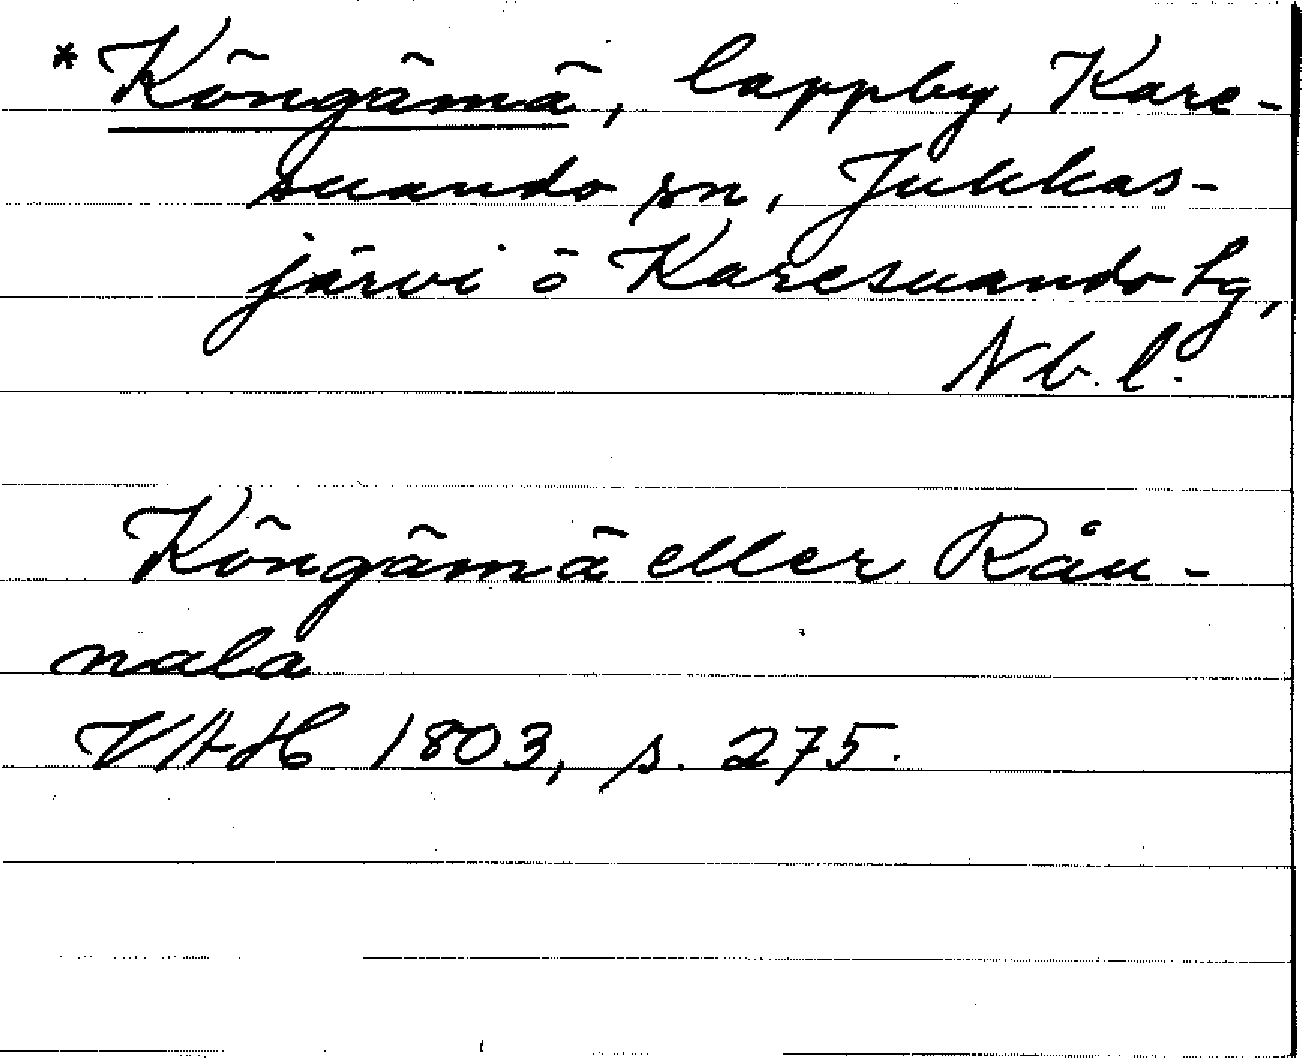 * Köngämä, lappby, Kare-
suando sn, Jukkas-
järvi o Karesuando tg,
Nb. l.
Köngämä eller Råu-
nala
VAH 1803, s. 275.